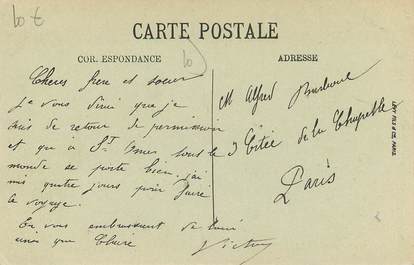 10 €
CARTE POSTALE
COR. ESPONDANCE
ADRESSE
10
Chères frere et soeur
Je vous dirai que je
suis de retour de permission
et que à St Omer tout le
monde se porte bien. j'ai
mis quatre jours pour faire
le voyage.
En vous embrassant de
que Claire
Victor
M Alfred
3 Citée de la Chapelle
Paris
LEVY FILS & Cie PARIS